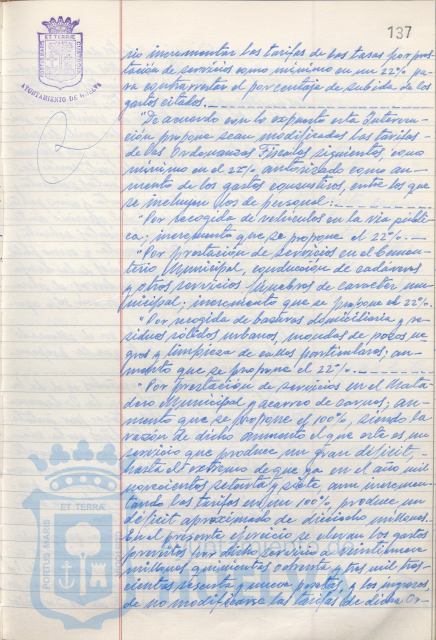 137
PORTUS MARIS ET TERRÆ CUSTODIA
AYUNTAMIENTO DE HUELVA
rio incrementar las tarifas de las tasas por pres
tación de servicios como mínimo en un 22% pa
ra contrarrestar el porcentaje de subida de los
gastos citados.
"De acuerdo con lo expuesto esta Interven
ción propone sean modificadas las tarifas
de las Ordenanzas Fiscales siguientes, como
mínimo en el 22% autorizado como au-
mento de los gastos consuntivos, entre los que
se incluyen los de personal:
"Por recogida de vehículos en la vía públi
ca; incremento que se propone el 22%.
"Por prestación de servicios en el Cemen-
terio Municipal, conducción de cadáveres
y otros servicios fúnebres de carácter mu
nicipal; incremento que se propone el 22%.
"Por recogida de basuras domiciliaria y re
siduos sólidos urbanos, mondas de pozos ne
gros y limpieza de calles particulares; au-
mento que se propone el 22%.
"Por prestación de servicios en el Mata
dero Municipal y acarreo de carnes; au-
mento que se propone el 100%, siendo la
razón de dicho aumento el que este es un
servicio que produce un gran déficit,
hasta el extremo de que ya en el año mil
novecientos setenta y siete aun incremen-
tando las tarifas en un 100% produce un
déficit aproximado de dieciocho millones.
En el presente ejercicio se elevan los gastos
previstos por dicho servicio a veintinueve
millones quinientas ochenta y tres mil tres-
cientas sesenta y nueve pesetas, y los ingresos
de no modificarse las tarifas de dicha Or-
ET TERRA
PORTUS MARIS